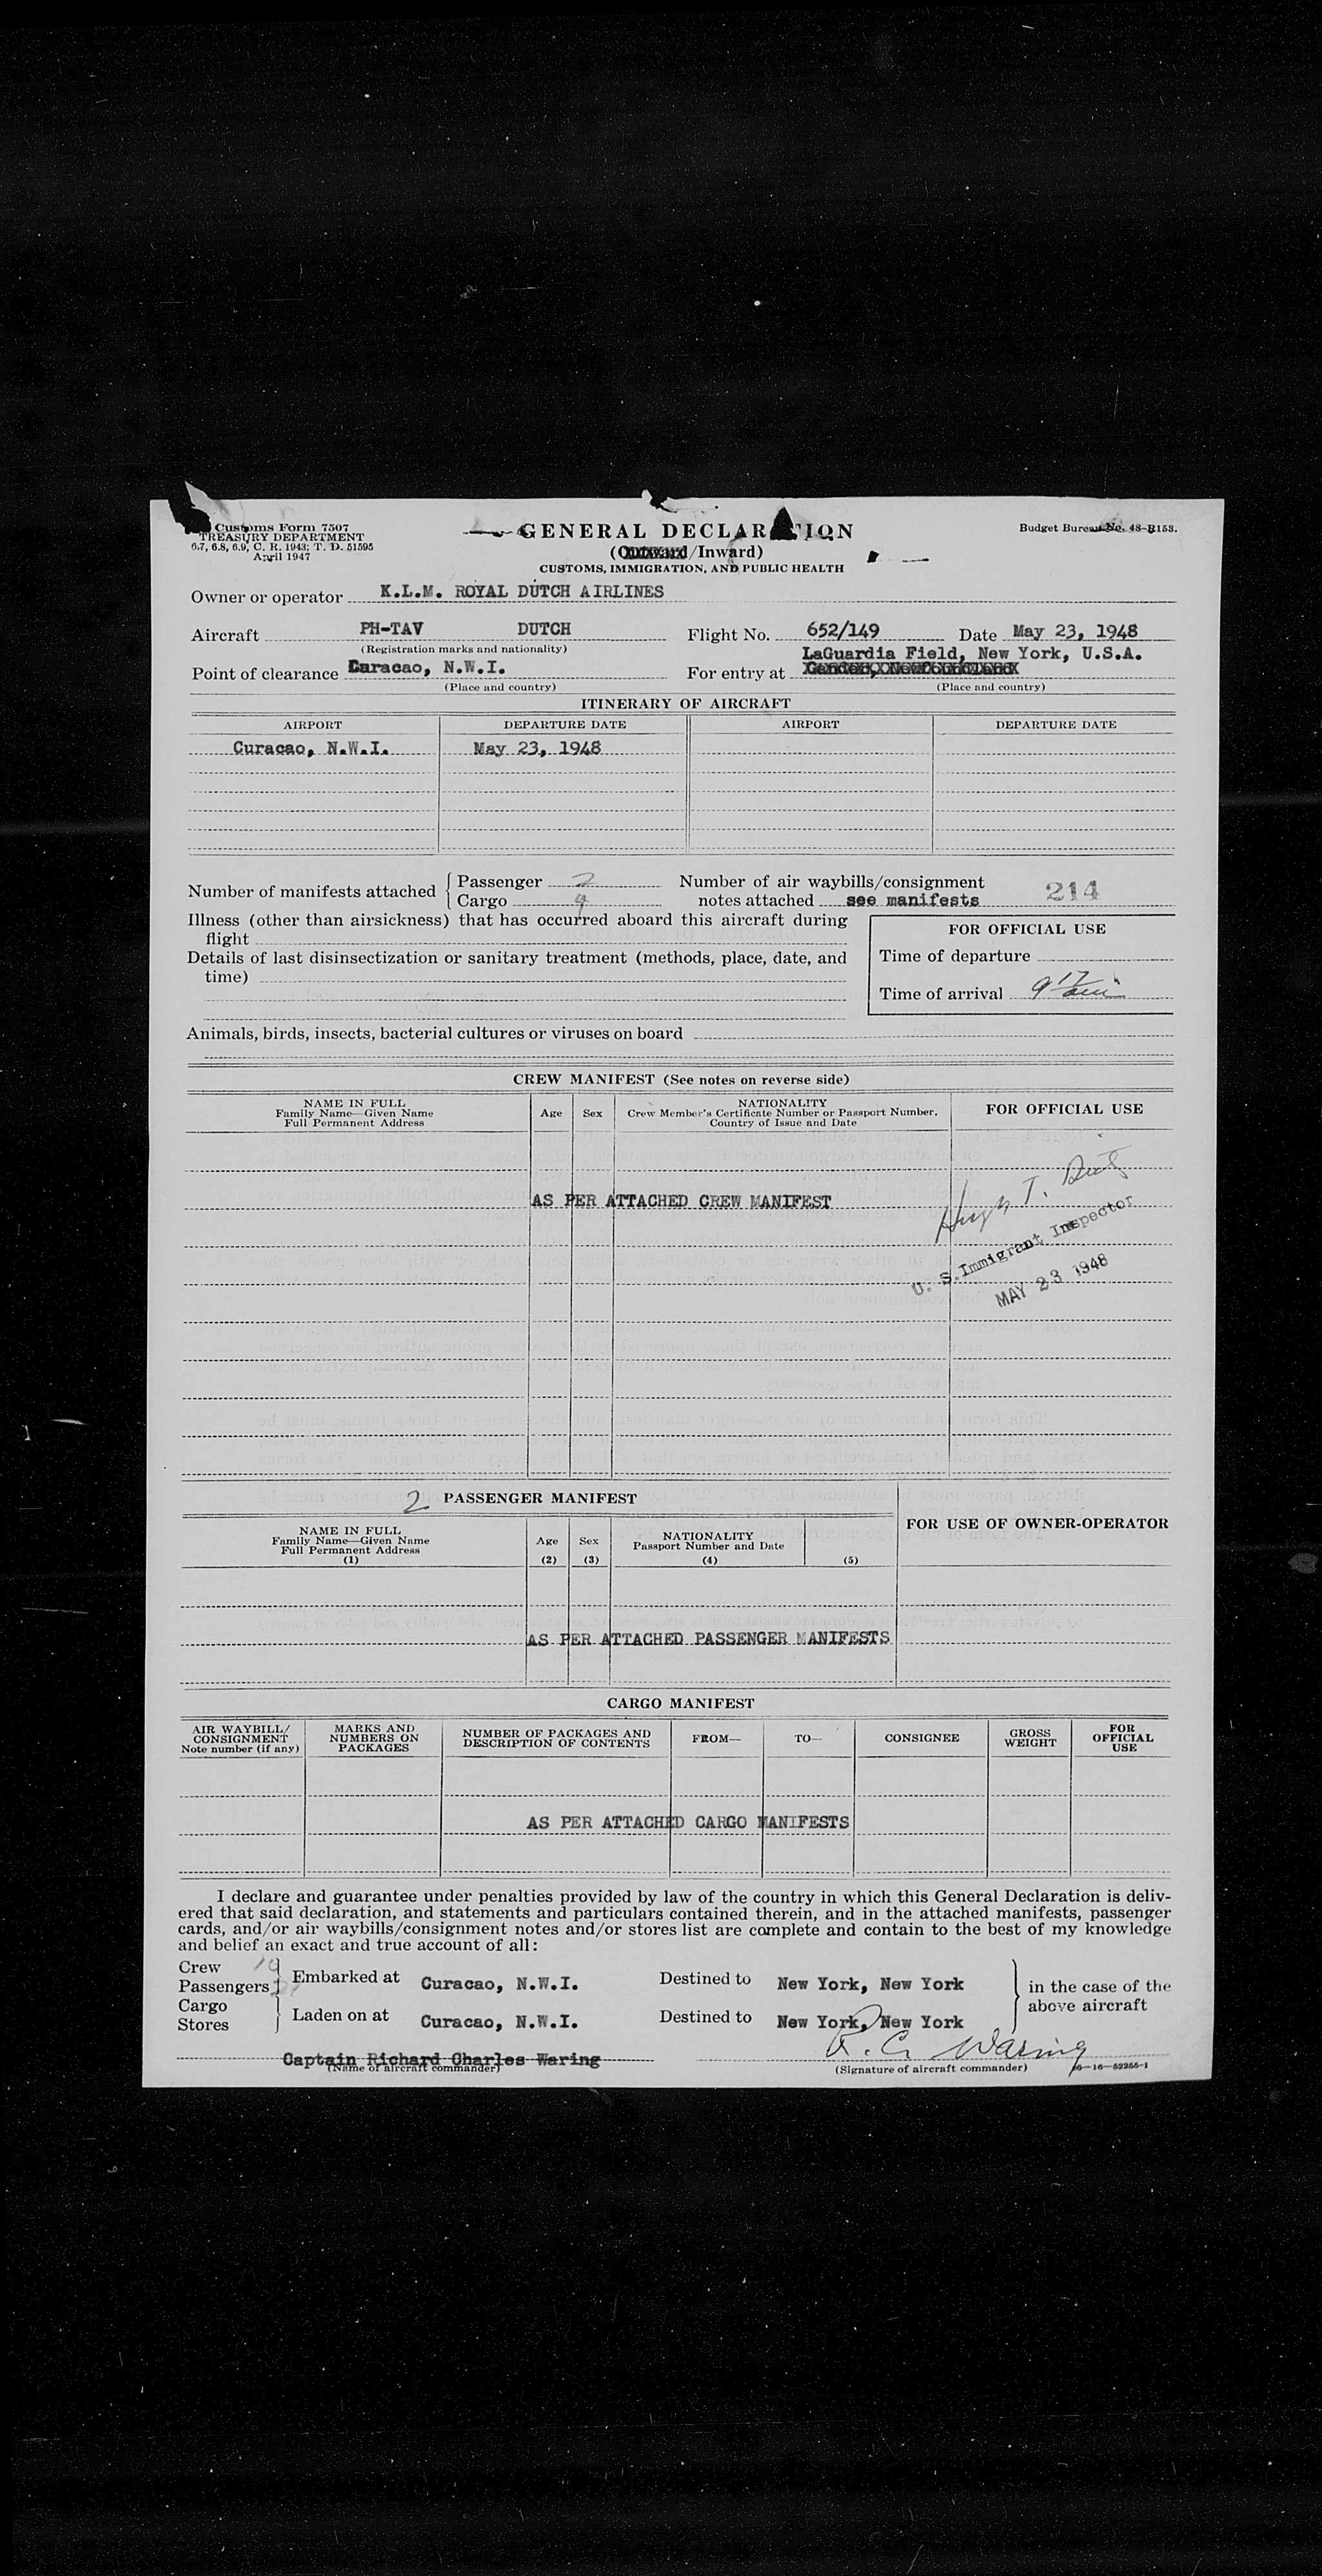 Customs Form 7507
TREASURY DEPARTMENT
6.7, 6.8, 6.9, C. R. 1943; T. D. 51595
April 1947
GENERAL DECLARATION
(Outward/Inward)
CUSTOMS, IMMIGRATION, AND PUBLIC HEALTH
Budget Bureau No. 48-R153.
Owner or operator K.L.M. ROYAL DUTCH AIRLINES
Aircraft PH-TAV DUTCH Flight No. 652/149 Date May 23, 1948
(Registration marks and nationality)
LaGuardia Field, New York, U.S.A.
Point of clearance Curacao, N.W.I. For entry at
(Place and country) (Place and country)
ITINERARY OF AIRCRAFT
AIRPORT DEPARTURE DATE AIRPORT DEPARTURE DATE
Curacao, N.W.I. May 23, 1948
Number of manifests attached
Passenger 2
Cargo 9
Number of air waybills/consignment
notes attached see manifests
214
Illness (other than airsickness) that has occurred aboard this aircraft during
flight
Details of last disinsectization or sanitary treatment (methods, place, date, and
time)
FOR OFFICIAL USE
Time of departure
Time of arrival 9 17 am
Animals, birds, insects, bacterial cultures or viruses on board
CREW MANIFEST (See notes on reverse side)
NAME IN FULL
Family Name—Given Name
Full Permanent Address
Age
Sex
NATIONALITY
Crew Member's Certificate Number or Passport Number,
Country of Issue and Date
FOR OFFICIAL USE
AS PER ATTACHED CREW MANIFEST
Hugh T.
U. S. Immigrant Inspector
MAY 23 1948
2 PASSENGER MANIFEST
NAME IN FULL
Family Name—Given Name
Full Permanent Address
(1)
Age
(2)
Sex
(3)
NATIONALITY
Passport Number and Date
(4)
(5)
FOR USE OF OWNER-OPERATOR
AS PER ATTACHED PASSENGER MANIFESTS
CARGO MANIFEST
AIR WAYBILL/
CONSIGNMENT
Note number (if any)
MARKS AND
NUMBERS ON
PACKAGES
NUMBER OF PACKAGES AND
DESCRIPTION OF CONTENTS
FROM—
TO—
CONSIGNEE
GROSS
WEIGHT
FOR
OFFICIAL
USE
AS PER ATTACHED CARGO MANIFESTS
I declare and guarantee under penalties provided by law of the country in which this General Declaration is deliv-
ered that said declaration, and statements and particulars contained therein, and in the attached manifests, passenger
cards, and/or air waybills/consignment notes and/or stores list are complete and contain to the best of my knowledge
and belief an exact and true account of all:
Crew
Passengers
Embarked at Curacao, N.W.I. Destined to New York, New York
Cargo
Stores
Laden on at Curacao, N.W.I. Destined to New York, New York
in the case of the
above aircraft
Captain Richard Charles Waring
(Name of aircraft commander)
R. C. Waring
(Signature of aircraft commander)
16-52255-1